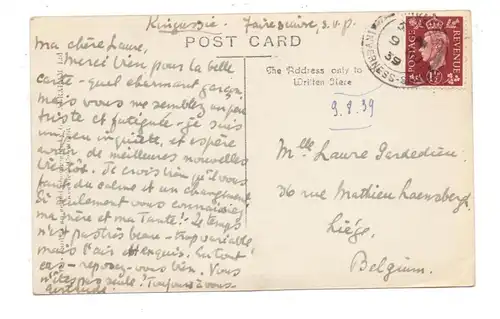 Kingussie. Faire suivre, s.v.p.
POST CARD
Ma chère Laure,
Merci bien pour la belle
carte - quel charmant garçon,
mais vous me semblez un peu
triste et fatiguée - je suis
un peu inquiète, et espère
avoir de meilleures nouvelles
bientôt. Je crois bien qu'il vous
faut du calme et un changement
Si seulement vous connaissiez
ma mère et ma Tante! Le temps
n'est pas très beau - trop variable
mais l'air exquis. En tout
cas - reposez-vous bien. Vous
n'êtes pas seule! Toujours à vous
Gertrude.
The Address only to be
Written Here
9.8.39
Mlle Laure
36 rue Mathieu Laensbergh
Liége.
Belgium.
INVERNESS-S
9
39
POSTAGE
REVENUE
1½D